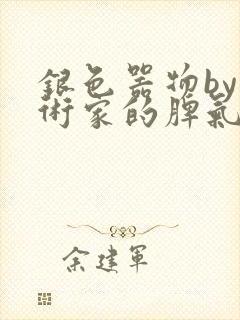 銀色器物by
術家的脾氣
余建軍